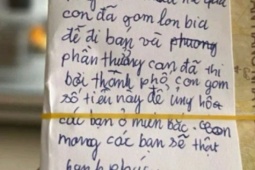 con đã gom lon bia
để đi bán và phương
phần thưởng con đã thi
bơi thành phố, con gom
số tiền này để ủng hộ
các bạn ở miền Bắc. Con
mong các bạn sẽ thật
hạnh phúc